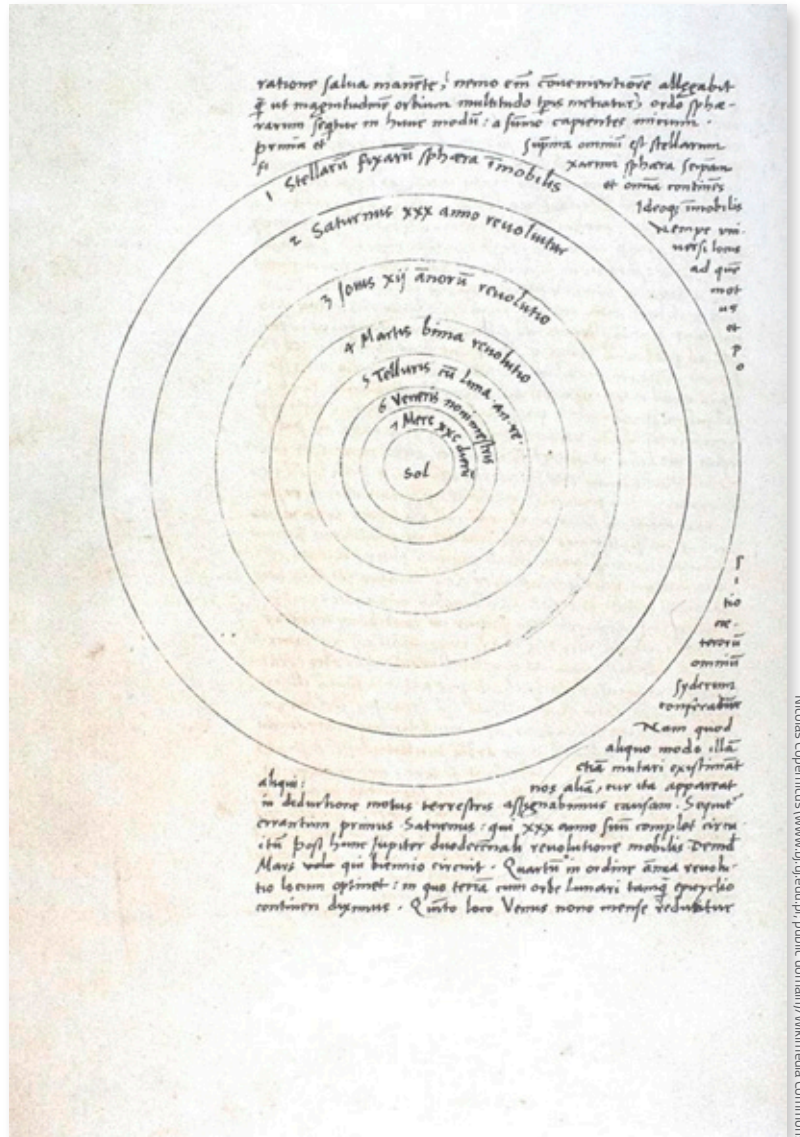 ratione salua manēte, nemo em̄ cōuenientiorē allegabit
q̄ ut magnitudinē orbium multitudo tp̄is metiatur, ordo sphæ-
rarum seqtur in hunc modū: a sūmo capientes initium.
prima et suprema omniū est stellarum
fi xarum sphæra seipsam
et omīa continēs
Ideoq; īmobilis
nempe vni-
uersi locus
ad quē
mot
us
et
p
o
1 Stellarū fixarū sphæra īmobilis
2 Saturnus xxx anno reuoluitur
3 Iouis xij ānorū reuolutio
4 Martis bima reuolutio
5 Telluris cū Luna an. re.
6 Veneris nonimestris
7 Merc xxc dierū
Sol
s
i
tio
ce-
terorū
omniū
syderum
conferatur
Nam quod
aliquo modo illā
etiā mutari existimāt
aliqui: nos aliā, cur ita appareat
in deductione motus terrestris assignabimus causam. Sequit
errantium primus Saturnus: qui xxx anno suū complet circu
itū post hunc Iupiter duodecennali reuolutione mobilis Deind
Mars qui biennio circuit. Quartū in ordine annua reuolu-
tio locum optinet: in quo terrā cum orbe Lunari tamq̄ epicyclio
contineri diximus. Quinto loco Venus nono mense reducitur
Nicolas Copernicus (www.bj.uj.edu.pl, public domain)/Wikimedia Common